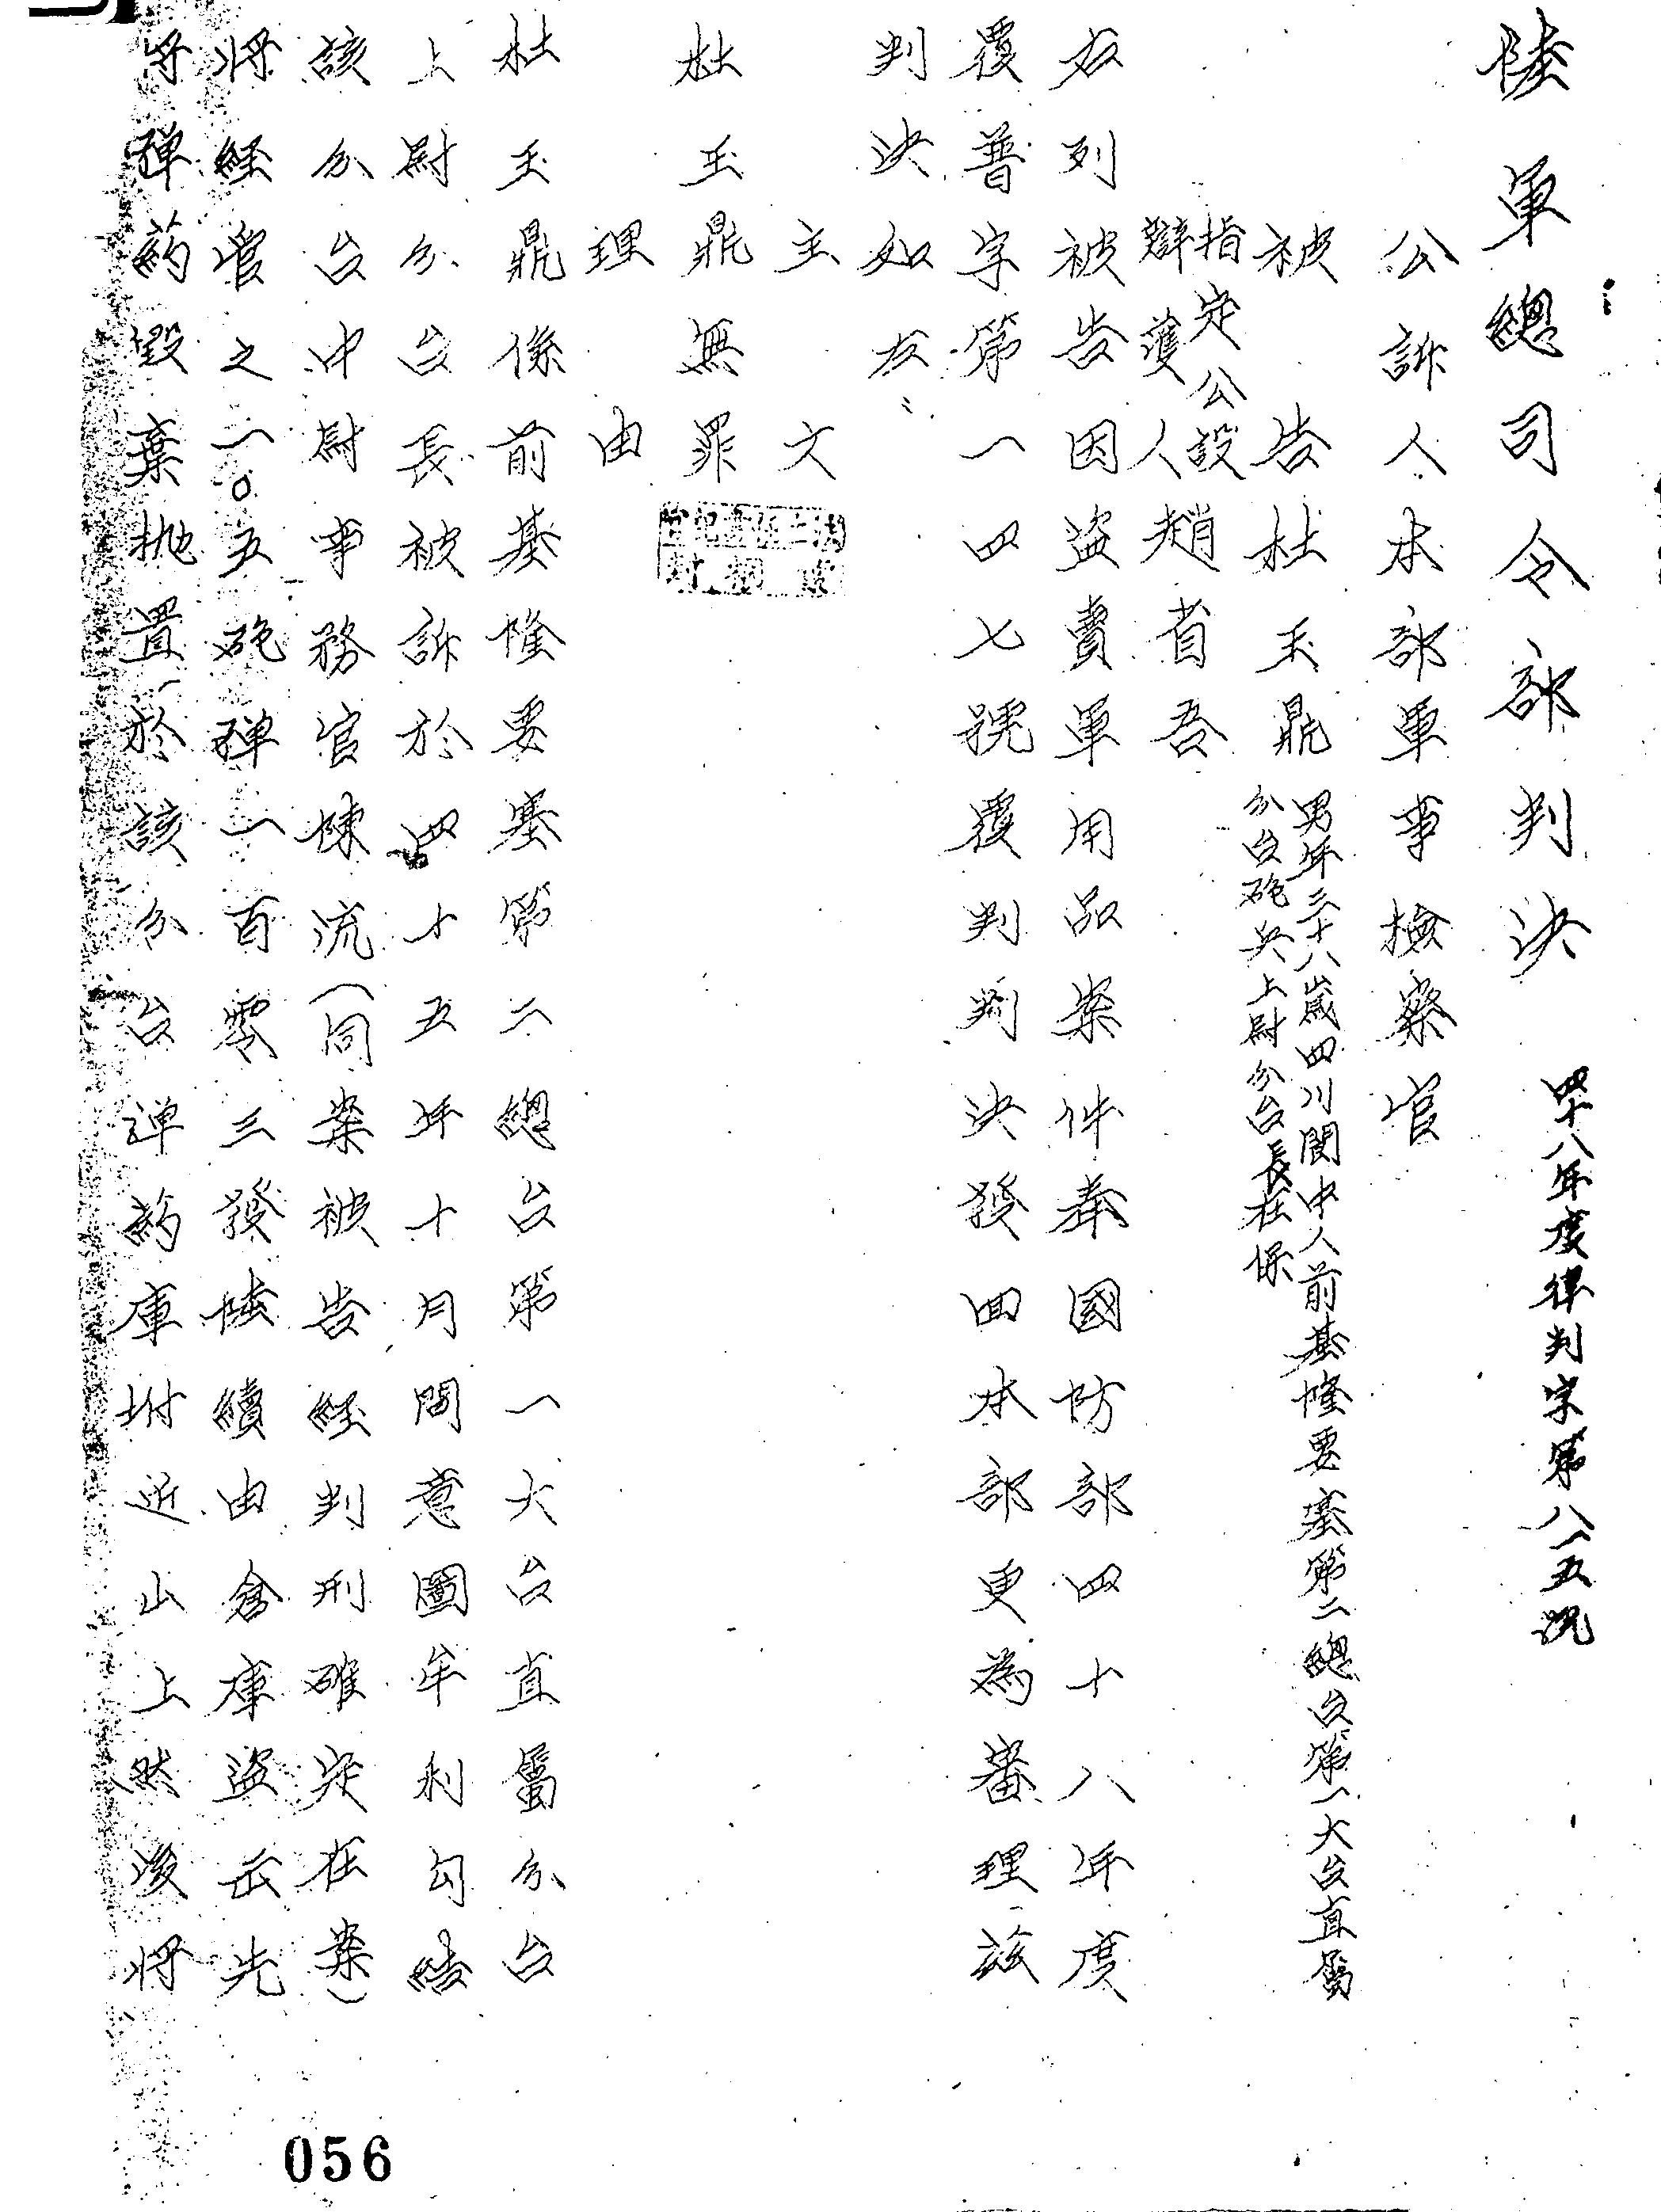 陸軍總司令部判決 四十八年度律判字第八一五號
公訴人本部軍事檢察官
被告杜玉鼎 男年三十八歲四川閬中人前基隆要塞第二總台第一大台直屬
分台砲兵上尉分台長在保
指定公設
辯護人趙省吾
右列被告因盜賣軍用品案件奉國防部四十八年度
覆普字第一四七號覆判判決發回本部更為審理茲
判決如左：
主文
杜玉鼎無罪
理由
杜玉鼎係前基隆要塞第二總台第一大台直屬分台
上尉分台長被訴於四十五年十月間意圖牟利勾結
該分台中尉事務官陳流（同案被告經判刑確定在案）
將經管之一○五砲彈一百零三發陸續由倉庫盜出先
將彈藥毀棄拋置於該分台彈藥庫坿近山上然後將
056